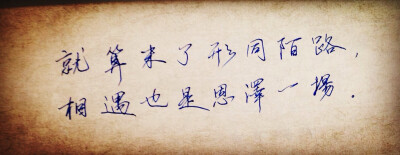 就算末了形同陌路,
相遇也是恩澤一場.